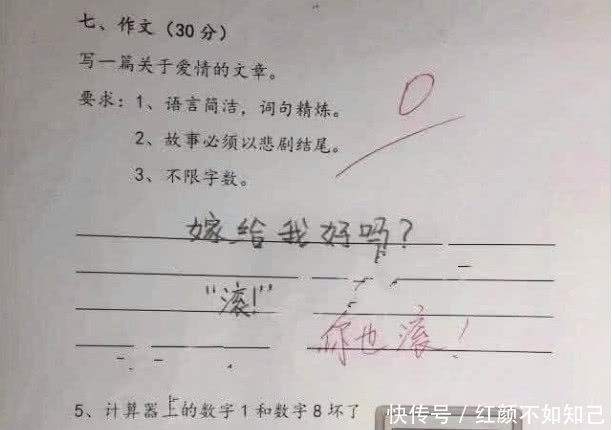 七、作文(30分)
写一篇关于爱情的文章。
要求：1、语言简洁，词句精炼。
2、故事必须以悲剧结尾。
3、不限字数。
0
嫁给我好吗？
“滚！”
你也滚！
5、计算器上的数字1和数字8坏了
快传号/红颜不如知己